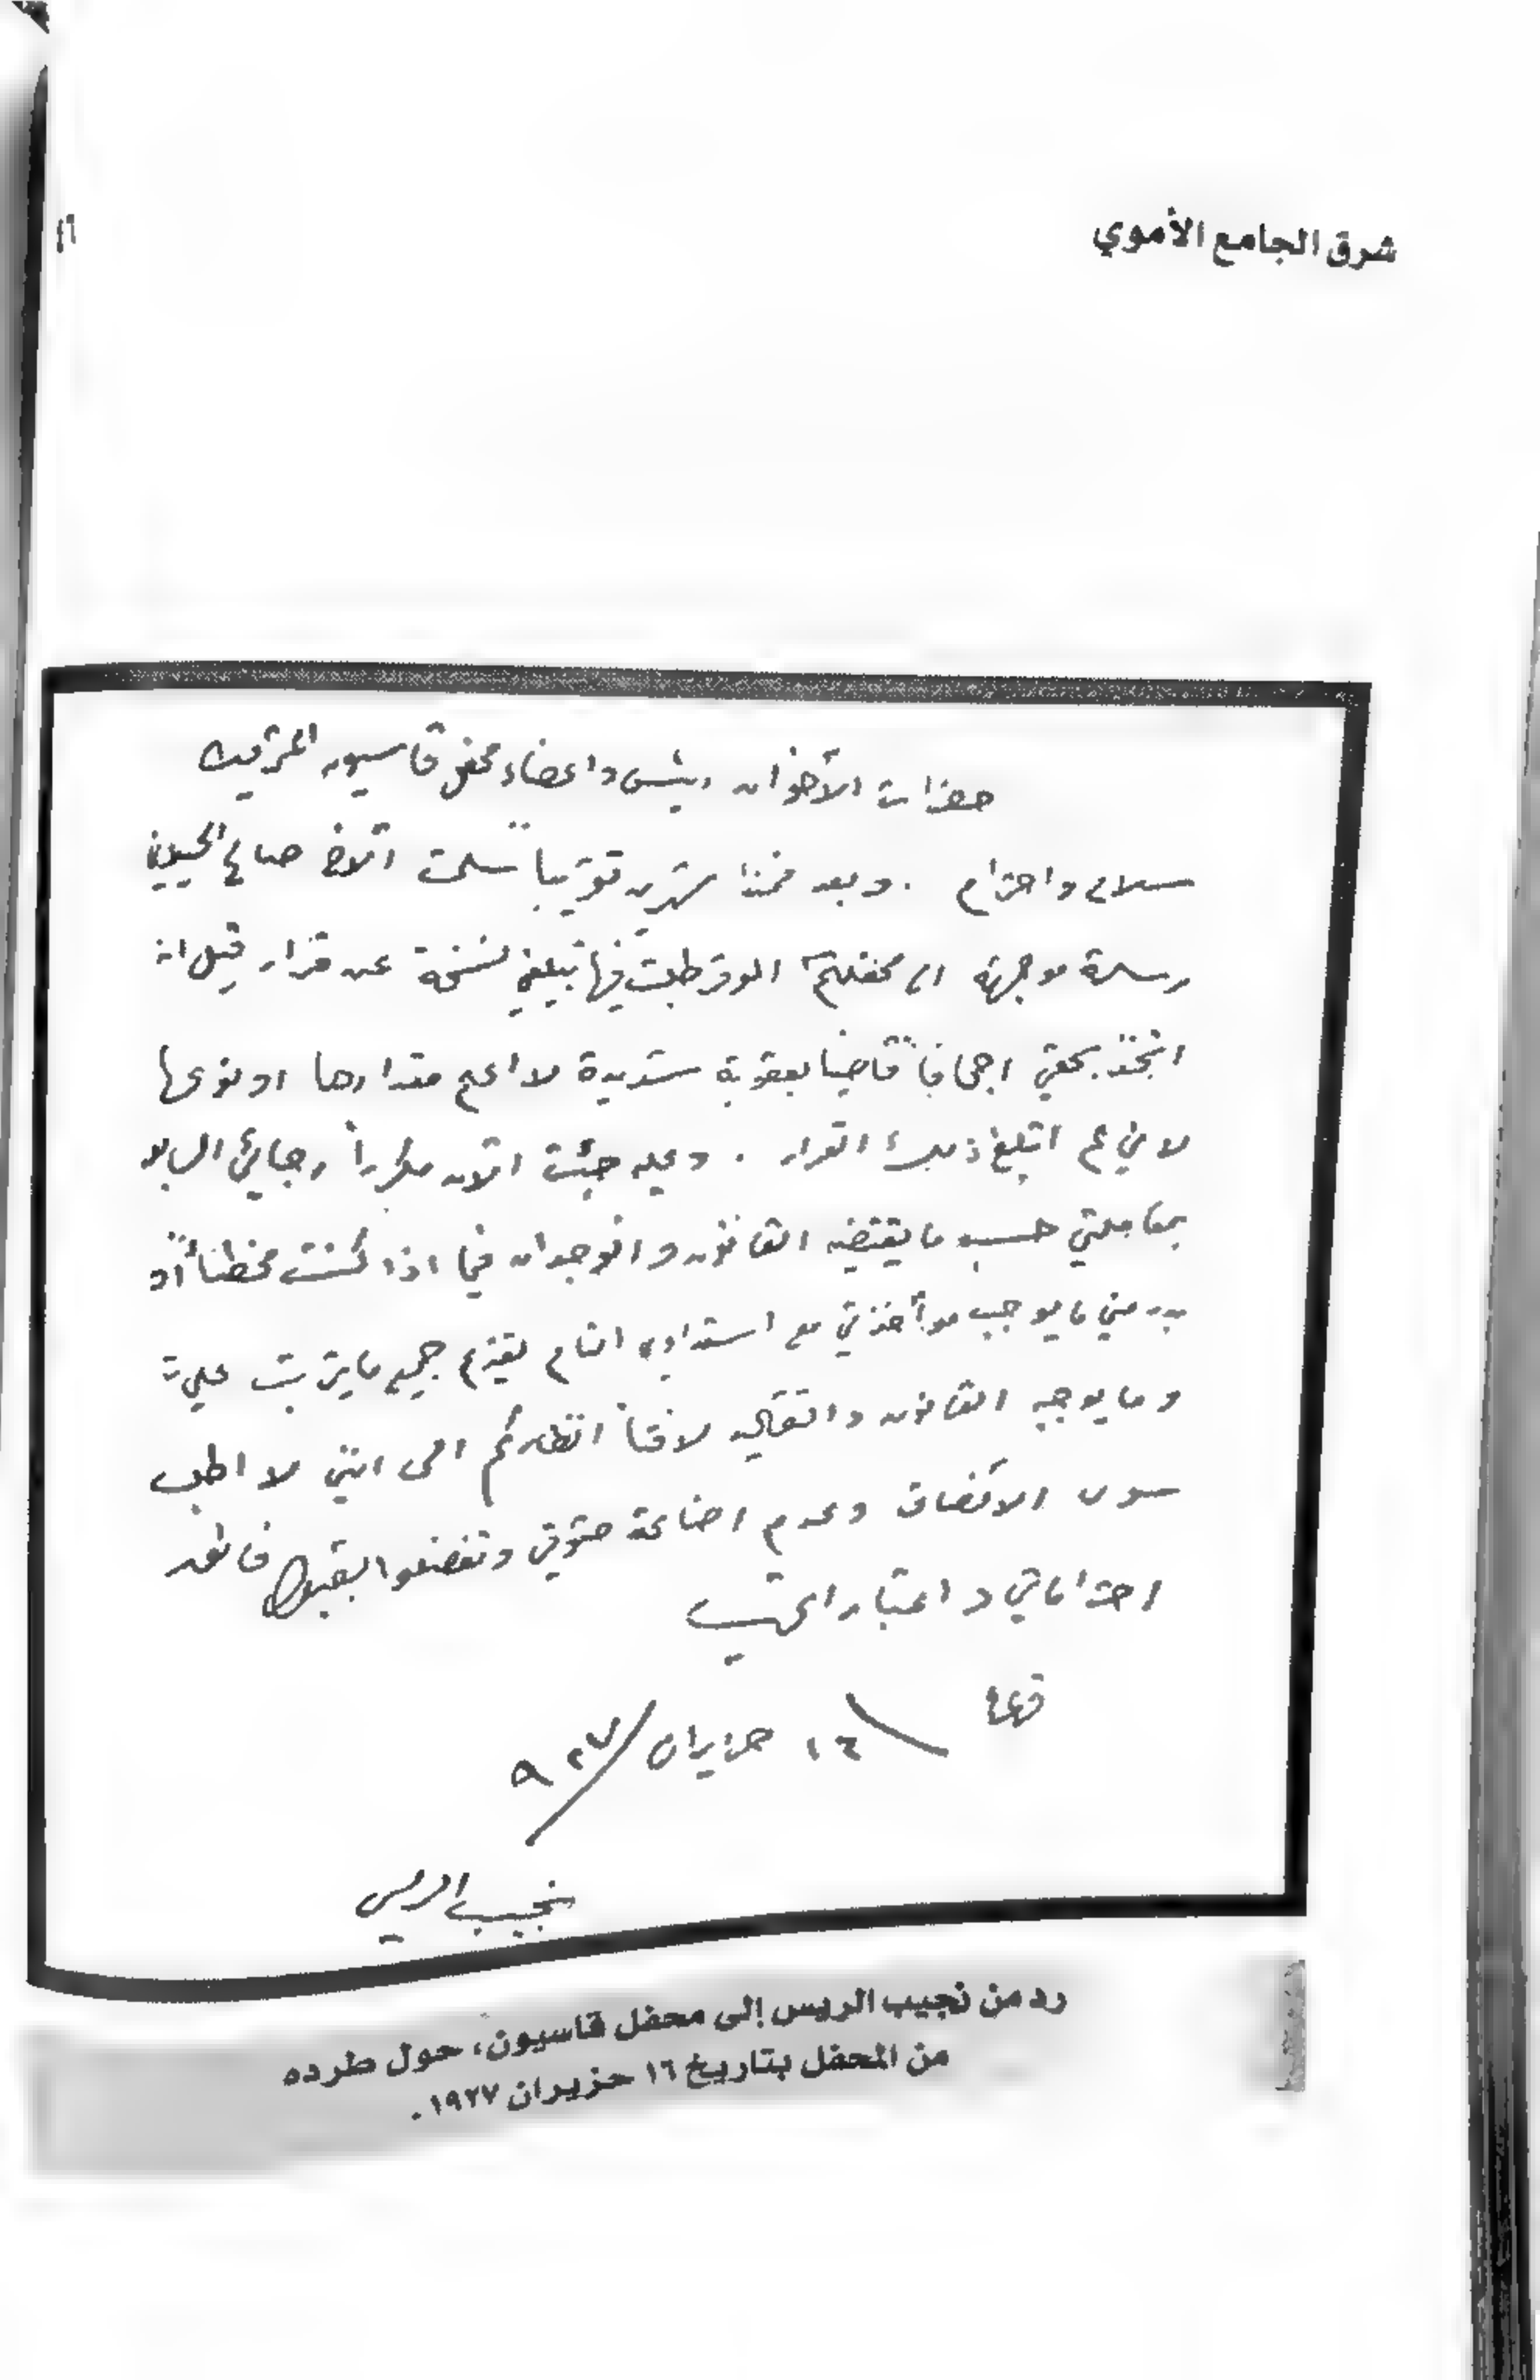 شرق الجامع الأموي
٤٦
حضرات الأخوان رئيس واعضاء محفل قاسيون المحترمين
سلام واحترام . وبعد فمنذ شهرين تقريباً سلمت الأخ صالح الحيلاني
رسالة موجهة الى محفلكم الموقر طلبت فيها تبليغي نسخة عن قرار قيل انه
اتخذ بحقي اجحافاً قاضياً بعقوبة شديدة لا اعلم مقدارها او نوعها
لاني لم اتبلغ ذلك القرار . وعليه جئت الآن مكرراً رجائي السابق
بمعاملتي حسب ما يقتضيه القانون والوجدان فيما اذا كنت مخطئاً او
بدر مني ما يوجب مؤاخذتي مع استعدادي التام لتقديم جميع ما يترتب علي
وما يوجبه القانون والتقاليد لافتاً انظاركم الى انني لا اطلب
سوى الانصاف وعدم اضاعة حقوقي وتفضلوا بقبول فائق
احتراماتي واعتباراتي
١٦ حزيران ٩٢٧
نجيب الريس
رد من نجيب الريس إلى محفل قاسيون، حول طرده
من المحفل بتاريخ ١٦ حزيران ١٩٢٧.